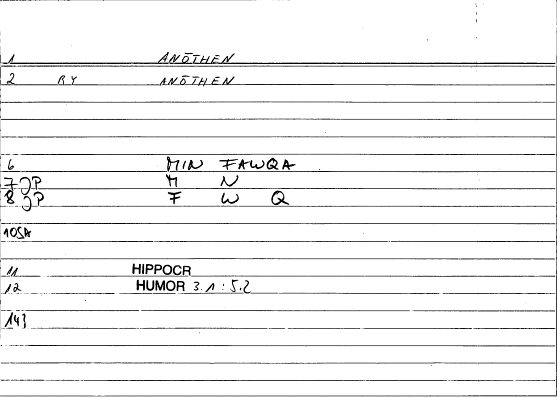 1 ANŌTHEN
2 RY ANŌTHEN
6 MIN FAWQA
7 JP M N
8 JP F W Q
10SA
11 HIPPOCR
12 HUMOR 3.1:5.2
143